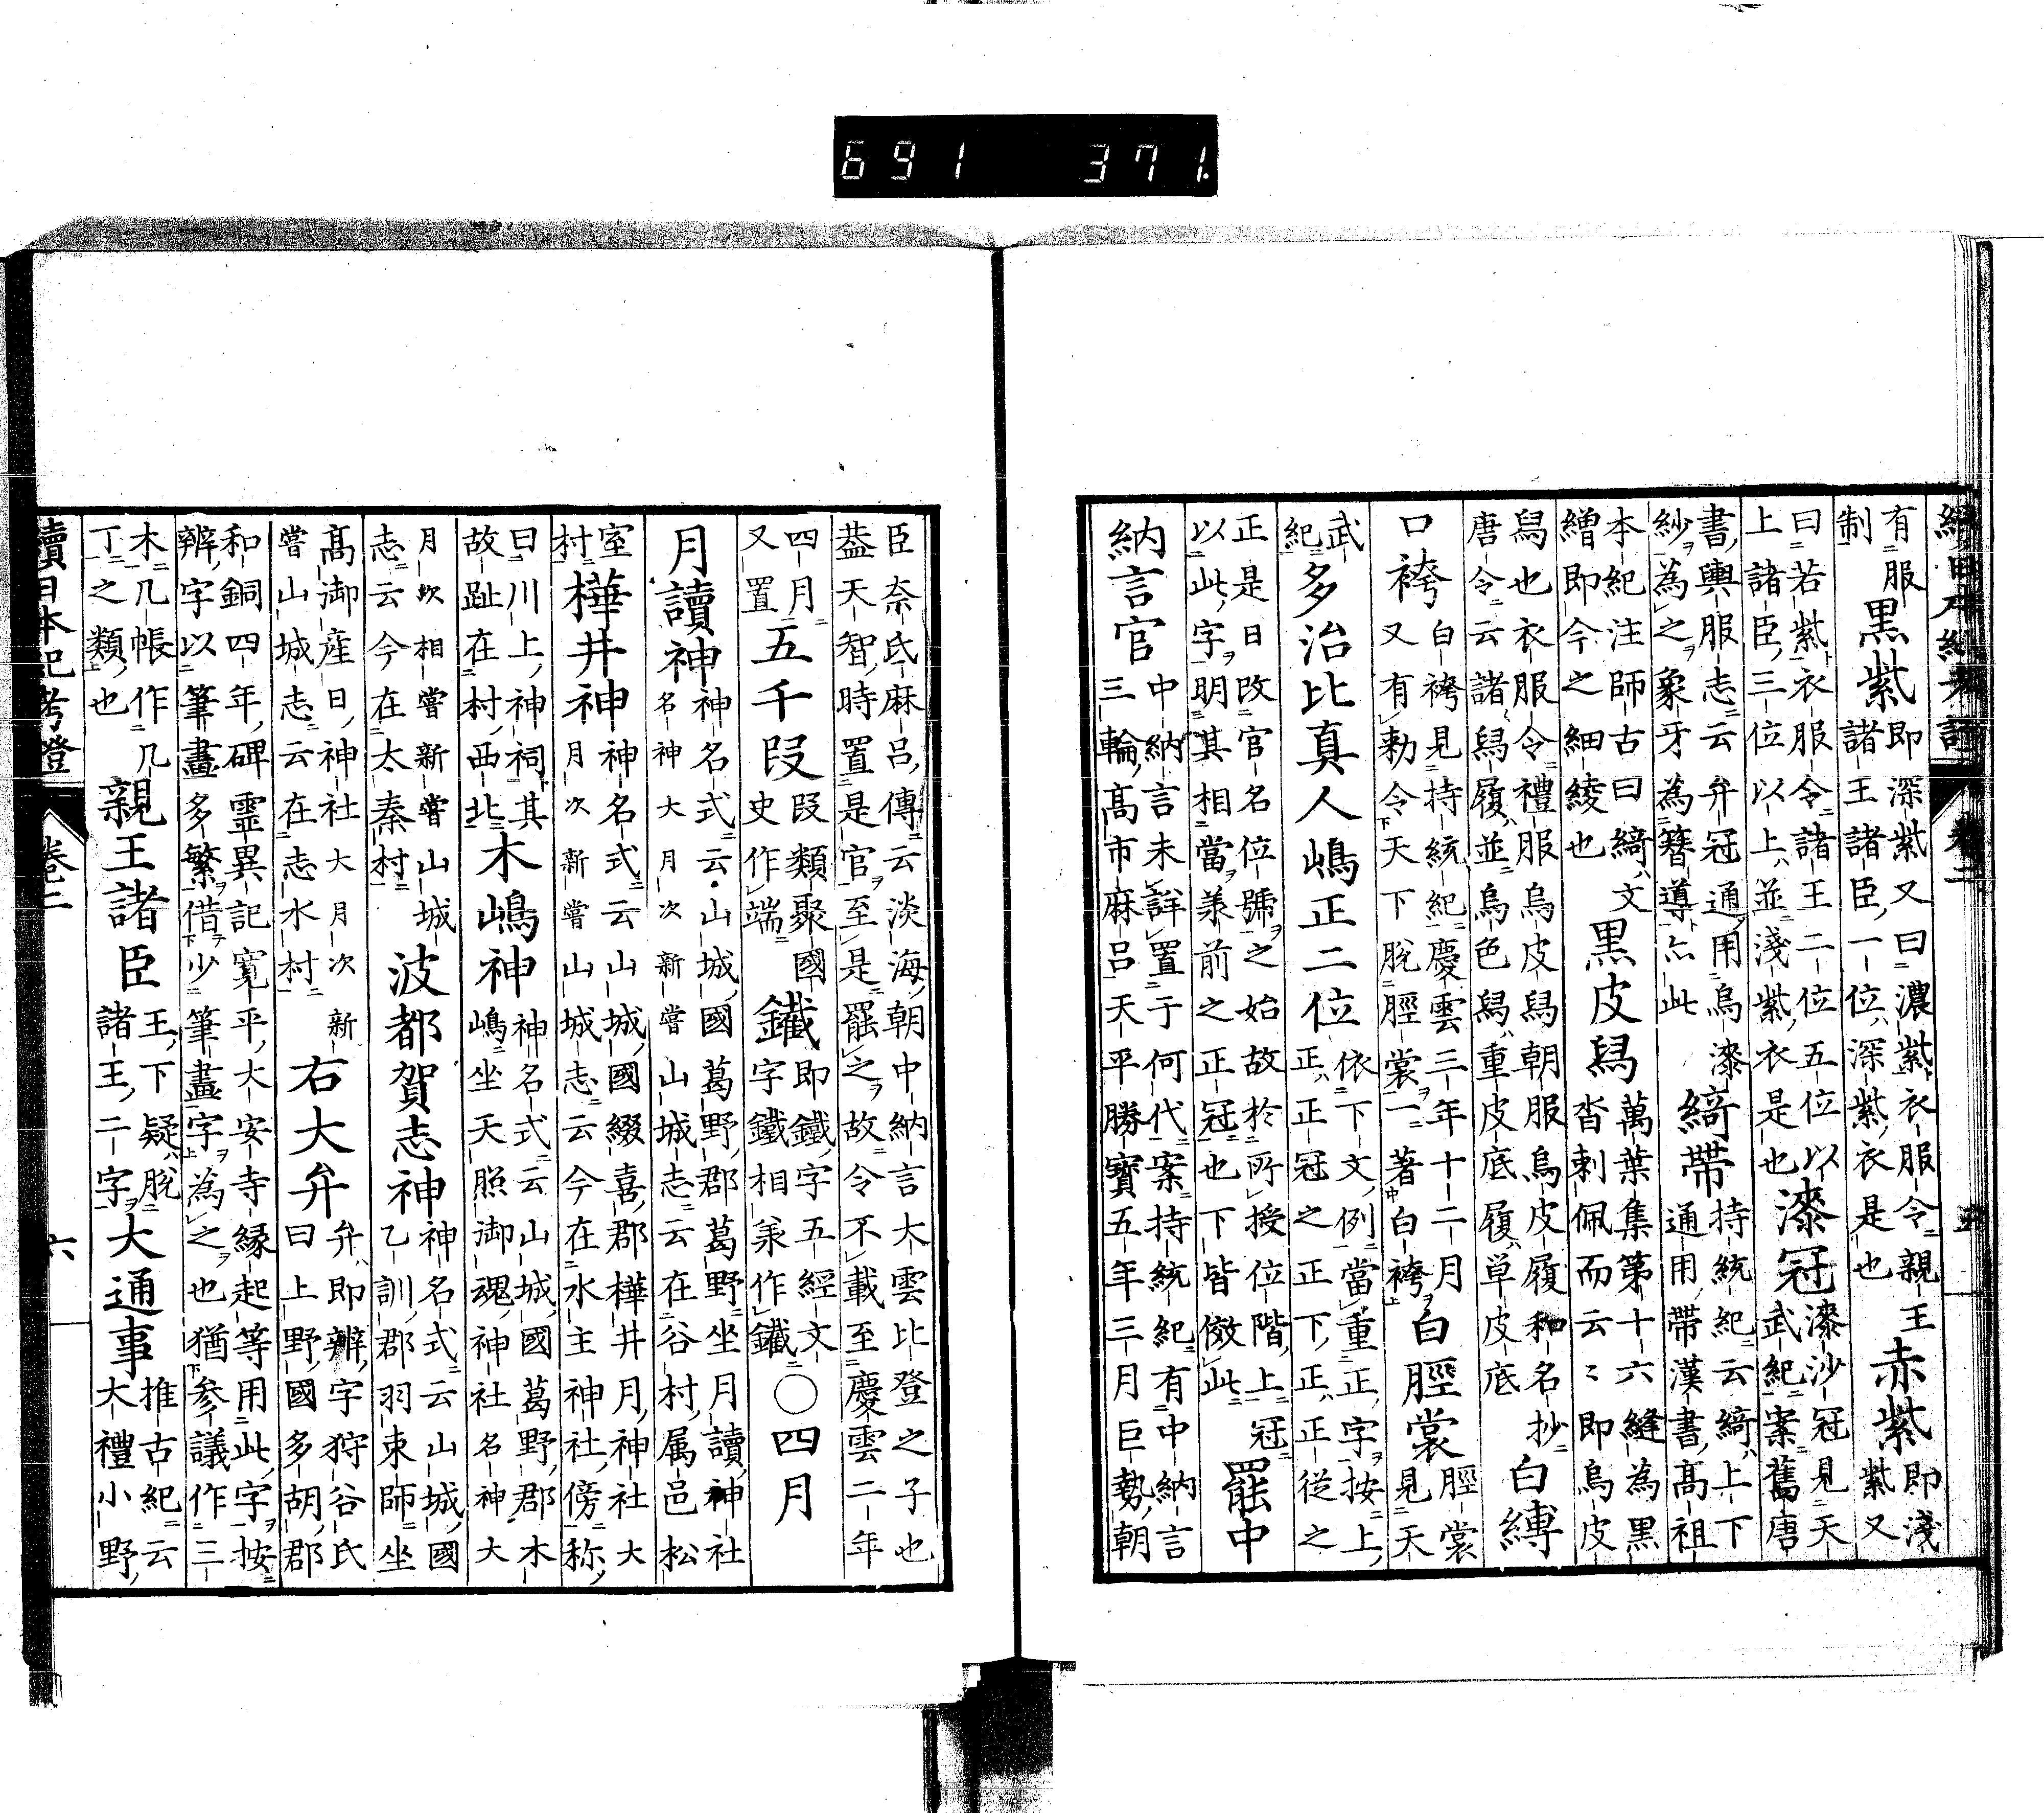 續日本紀考證 卷二 五
有服制黒紫即深紫又曰濃紫衣服令親王諸王諸臣一位深紫衣是也赤紫即淺紫又
曰若紫衣服令諸王二位五位以上諸臣三位以上並淺紫衣是也漆冠漆沙冠見天武紀案舊唐
書輿服志云弁冠通用烏漆紗為之象牙為簪導亦此綺帶持統紀云綺上下通用帶漢書髙祖
本紀注師古曰綺文繒即今之細綾也黒皮舄萬葉集第十六縫為黒沓刺佩而云〻即烏皮
舄也衣服令禮服烏皮舄朝服烏皮履和名抄唐令云諸舄履並烏色舄重皮底履單皮底白縛
口袴白袴見持統紀慶雲三年十二月又有勅令天下脫脛裳一著白袴白脛裳脛裳見天
武紀多治比真人嶋正二位依下文例當重正字按上正正冠之正下正正從之
正是日改官名位號之始故於所授位階上冠以此字明其相當兼前之正冠也下皆倣此罷中
納言官中納言未詳置于何代案持統紀有中納言三輪髙市麻呂天平勝寶五年三月巨勢朝
臣奈氐麻呂傳云淡海朝中納言大雲比登之子也葢天智時置是官至是罷之故令不載至慶雲二年
四月又置五千段段類聚國史作端鐵即鐵字五經文字鐵相兼作鐵〇四月
月讀神神名式云山城國葛野郡葛野坐月讀神社名神大月次新嘗山城志云在谷村属邑松
室村樺井神神名式云山城國綴喜郡樺井月神社大月次新嘗山城志云今在水主神社傍称
曰川上神祠其故趾在村西北木嶋神神名式云山城國葛野郡木嶋坐天照御魂神社名神大
月次相嘗新嘗山城志云今在太秦村波都賀志神神名式云山城國乙訓郡羽束師坐
髙御産日神社大月次新嘗山城志云在志水村右大弁弁即辨字狩谷氏曰上野國多胡郡
和銅四年碑靈異記寛平大安寺縁起等用此字按辨字以筆畫多繁借少筆畫字為之也猶參議作三
木几帳作几丁之類也親王諸臣王下疑脫諸王二字大通事推古紀云大禮小野
續日本紀考證 卷二 六
691 371.